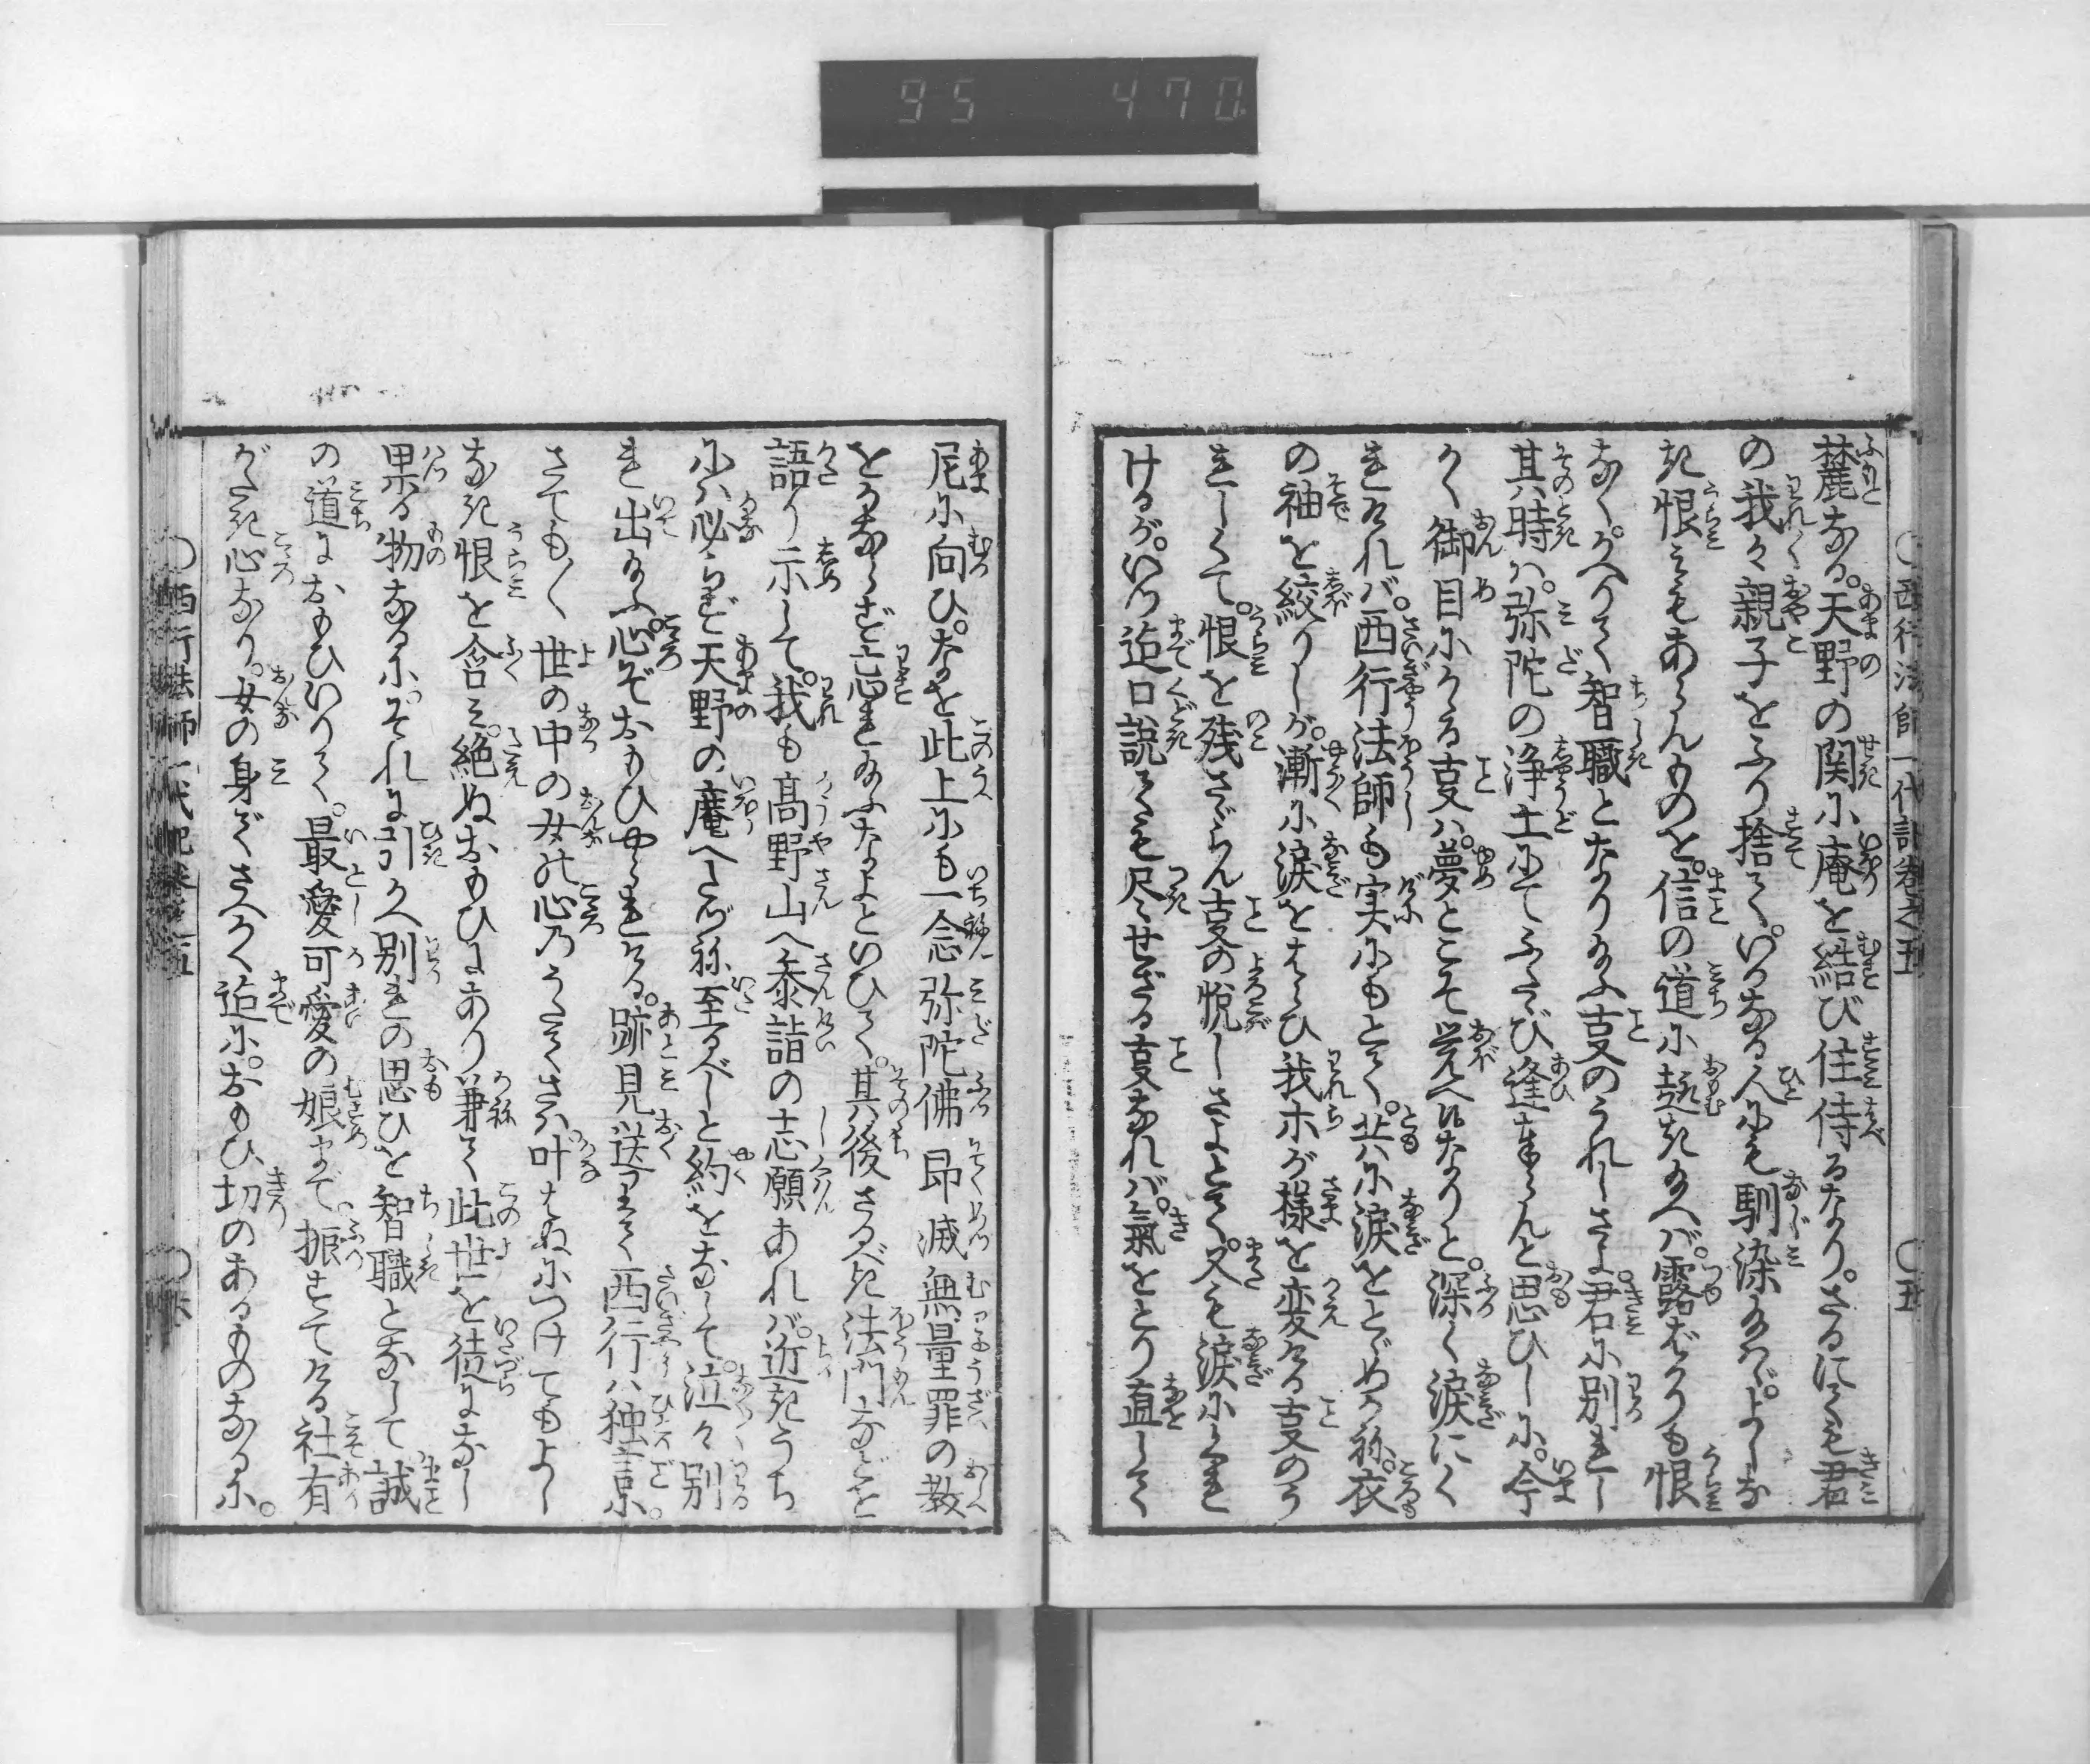 95 470
西行法師一代記巻之五 〇五
麓なる。天野の関に庵を結び住侍るなり。さるにても君
の我々親子をふり捨て。いかなる人にも馴染給ふぞ。よしな
き恨みもあらんものを。信の道に趣き給へバ。露ばかりも恨
なく。かへりて智職となり給ふ事のうれしさよ君に別れし
其時ハ。弥陀の浄土にてふたゝび逢奉らんと思ひしに。今
かく御目にかゝる事ハ。夢とこそ覚へ候なりと。深く涙にく
れけれバ。西行法師も実にもとて。共に涙をとゞめかね。衣
の袖を絞りしが。漸に涙をはらひ我ホが様を変ける事のう
れしくて。恨を残さゞらん事の悦しさよとて。又も涙にくれ
けるが。いつ迄口説ても尽せざる事なれバ。氣をとり直して
尼に向ひ。なを此上にも一念弥陀佛即滅無量罪の教
をかならず忘れ給ふなよといひて。其後さるべき法門などを
語り示して。我も高野山へ参詣の志願あれバ。近きうち
にハ必らず天野の庵へたづね至るべしと約をなして。泣々別
れ出給ふ心ぞおもひやられける。跡見送りて西行ハ独言。
さても〱世の中の女の心のうたてさハ叶はぬにつけてもよし
なき恨を含み。絶ぬおもひにあり兼て此世を徒になし
果る物なるに。それに引かへ別れの思ひを智職となして誠
の道におもひいりて。最愛可愛の娘まで振すてける社有
がたき心なり。女の身でさへかく迄に。おもひ切のあるものなるに。
〇西行法師一代記巻之五 〇六